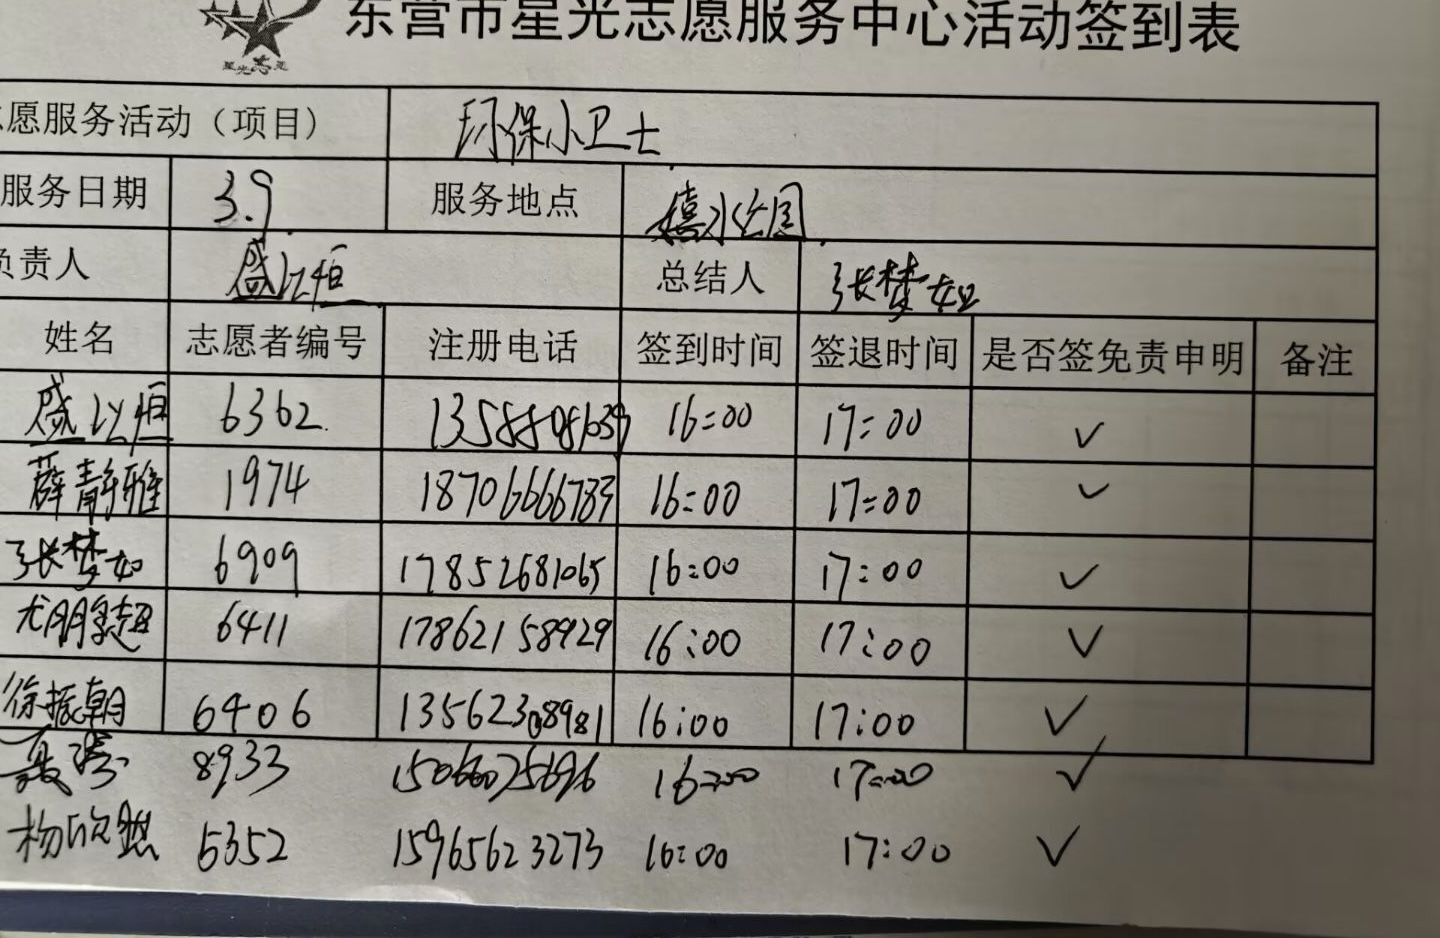 东营市星光志愿服务中心活动签到表
星光志愿
志愿服务活动（项目） 环保小卫士
服务日期 3.9 服务地点 嬉水公园
负责人 盛以恒 总结人 张梦如
姓名 志愿者编号 注册电话 签到时间 签退时间 是否签免责申明 备注
盛以恒 6362 16:00 17:00 ✓
薛静雅 1974 18706666783 16:00 17:00 ✓
张梦如 6909 17852681065 16:00 17:00 ✓
尤朋超 6411 17862158929 16:00 17:00 ✓
徐振朝 6406 13562308981 16:00 17:00 ✓
8933 15066075696 16:00 17:00 ✓
杨欣 6352 15965623273 16:00 17:00 ✓